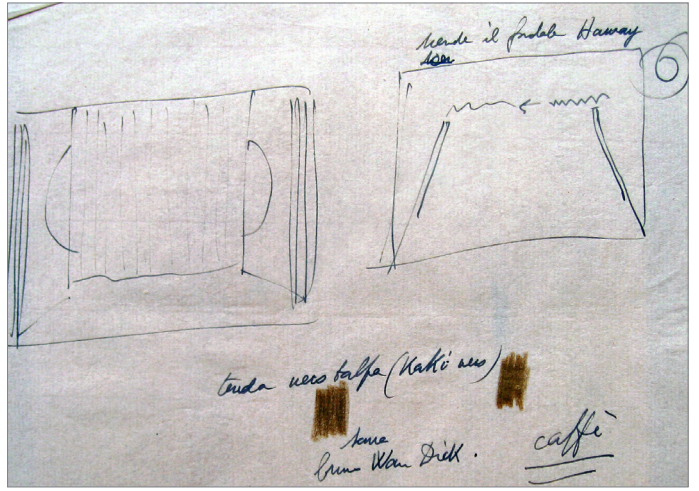 scende il fondale Haway
6
tenda nero talpa (Kaki nero)
terra
bruno Wan Dick.
caffè